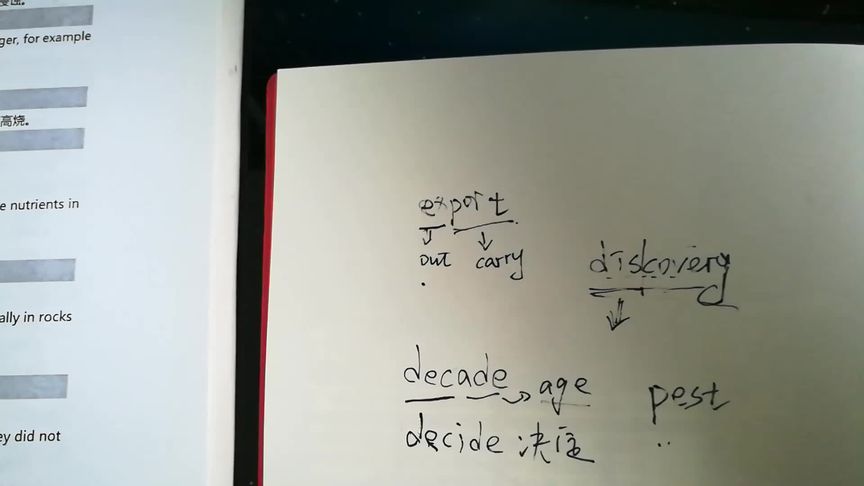 ger, for example
高烧。
e nutrients in
ally in rocks
ey did not
export
out carry
discovery
decade age
pest
decide 决定